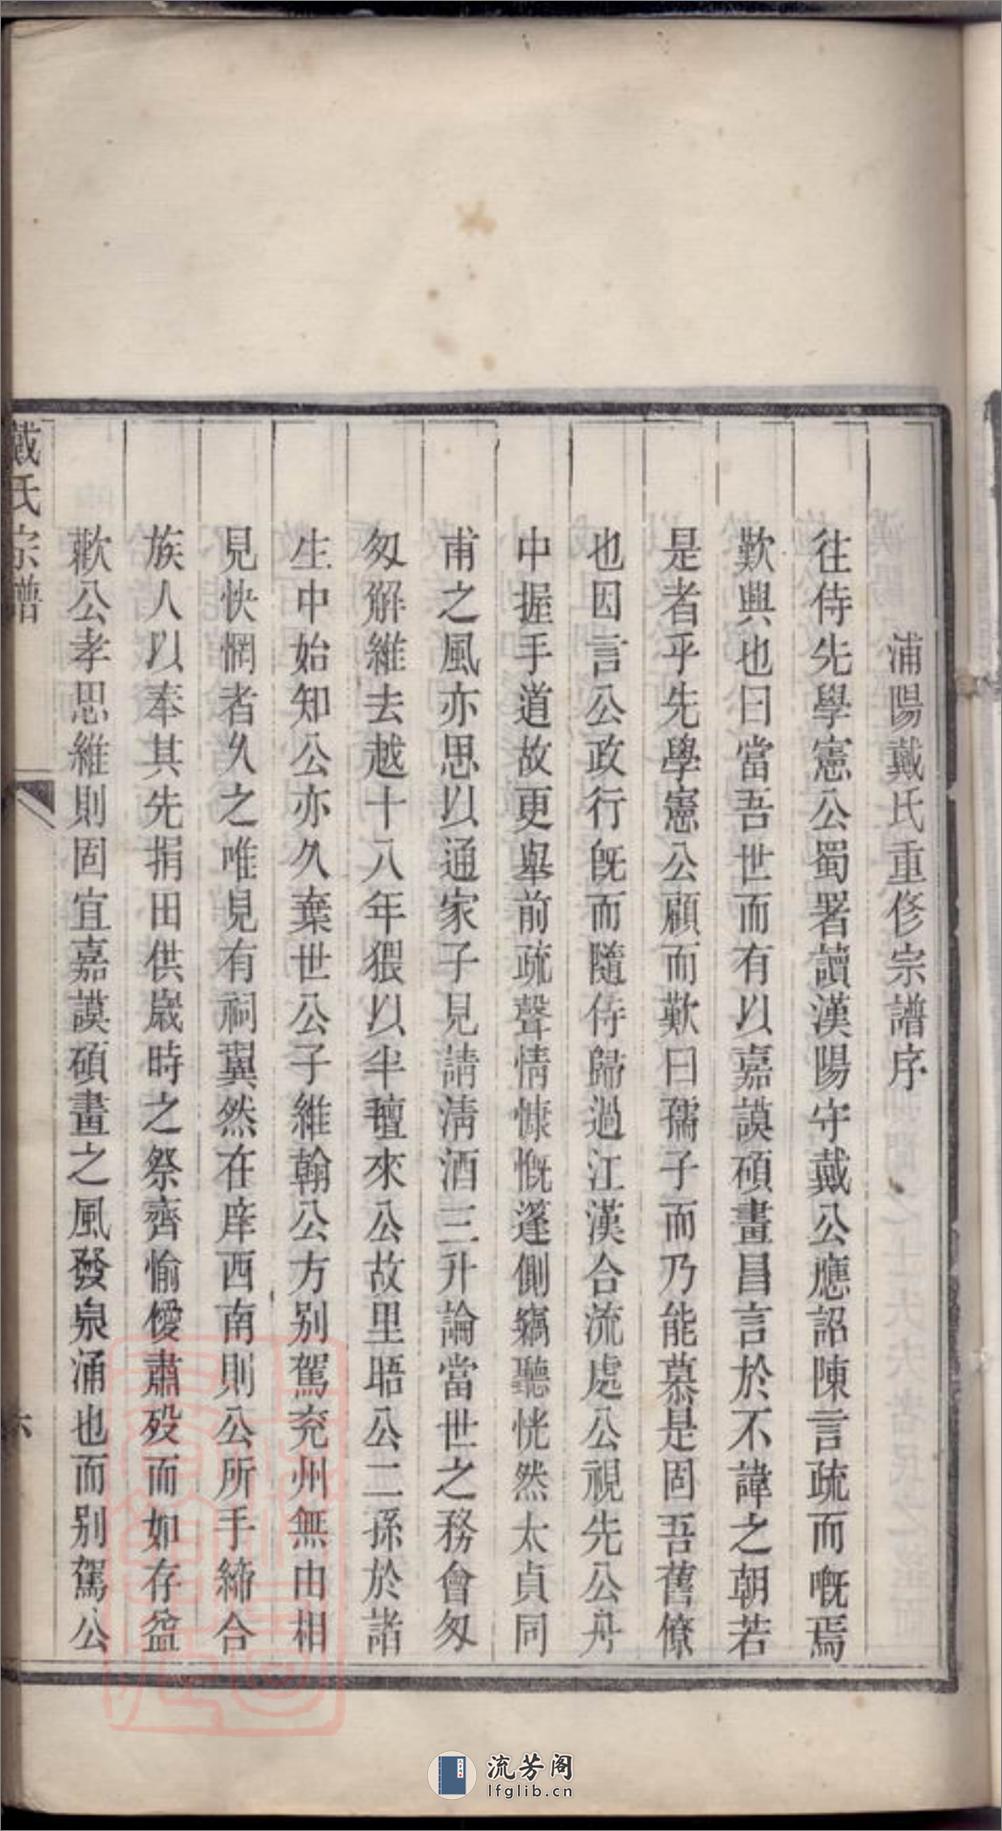 浦陽戴氏重修宗譜序
往侍先學憲公蜀署讀漢陽守戴公應詔陳言疏而嘅焉
歎興也曰當吾世而有以嘉謨碩畫昌言於不諱之朝若
是者乎先學憲公顧而歎曰孺子而乃能慕是固吾舊僚
也因言公政行旣而隨侍歸過江漢合流處公視先公舟
中握手道故更舉前疏聲情慷慨蓬側竊聽恍然太貞同
甫之風亦思以通家子見請淸酒三升論當世之務會匆
匆解維去越十八年猥以半壇來公故里晤公二孫於諸
生中始知公亦久棄世公子維翰公方别駕兖州無由相
見怏惘者久之唯見有祠翼然在庠西南則公所手締合
族人以奉其先捐田供歲時之祭齊愉僾肅歿而如存益
歡公孝思維則固宜嘉謨碩畫之風發泉涌也而别駕公
戴氏宗譜
六
流芳阁
lfglib.cn